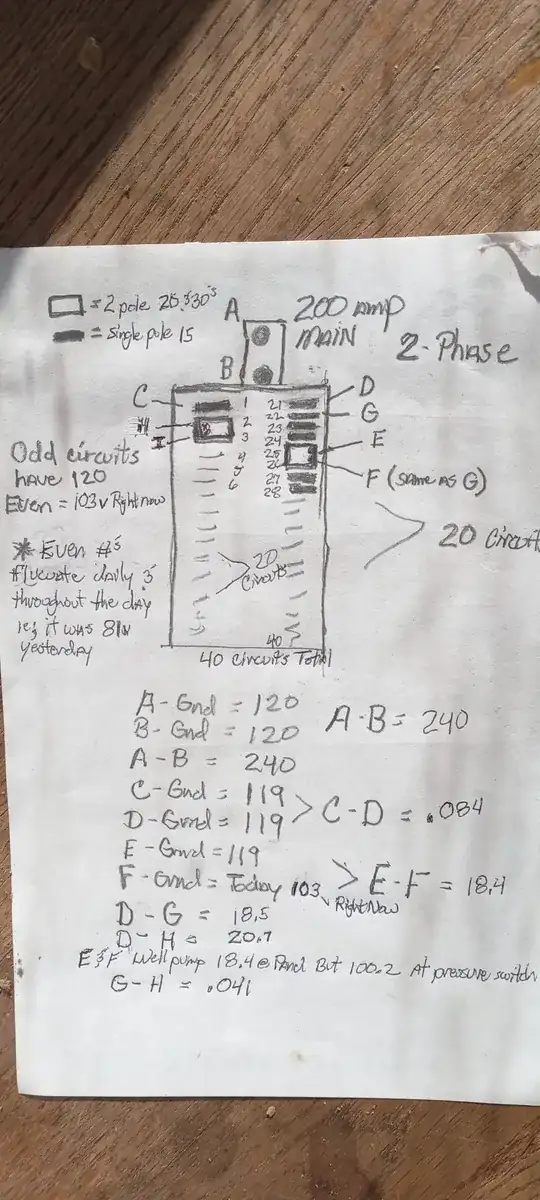 = 2 pole 20 & 30's
= single pole 15
A
200 Amp
MAIN
2-Phase
B
C
D
H
G
I
E
F (SAME AS G)
1
2
3
4
5
6
21
22
23
24
25
26
27
28
40
Odd circuits
have 120
Even = 103v Right now
* Even #s
fluctuate daily &
throughout the day
ie; it was 81v
yesterday
20
Circuits
20 Circuit
40 Circuits Total
A-Gnd = 120
B-Gnd = 120
A-B = 240
A-B = 240
C-Gnd = 119
D-Grnd = 119
> C-D = .084
E-Grnd = 119
F-Grnd = Today 103
Right Now
> E-F = 18.4
D-G = 18.5
D-H = 20.7
E & F Well pump 18.4 @ Panel But 100.2 At pressure switch
G-H = .041